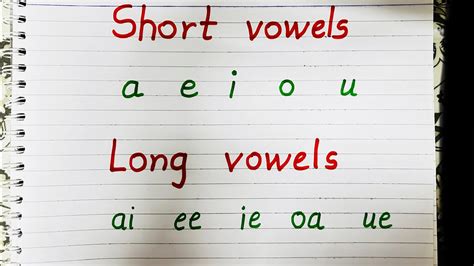 Short vowels
a e i o u
Long vowels
ai ee ie oa ue